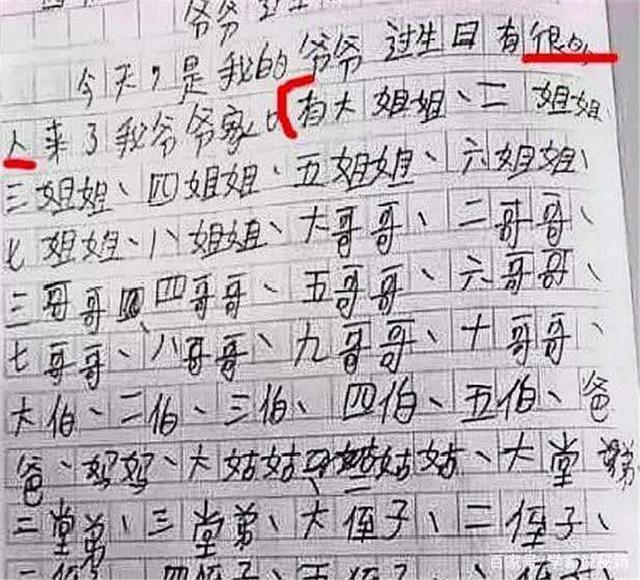 爷爷
今天，是我的爷爷过生日有很多
人来了我爷爷家。有大姐姐、二姐姐、
三姐姐、四姐姐、五姐姐、六姐姐、
七姐姐、八姐姐、大哥哥、二哥哥、
三哥哥四哥哥、五哥哥、六哥哥、
七哥哥、八哥哥、九哥哥、十哥哥、
大伯、二伯、三伯、四伯、五伯、爸
爸、妈妈、大姑姑、二姑姑、大堂弟
二堂弟、三堂弟、大侄子、二侄子、
三侄子、四侄子、五侄子、